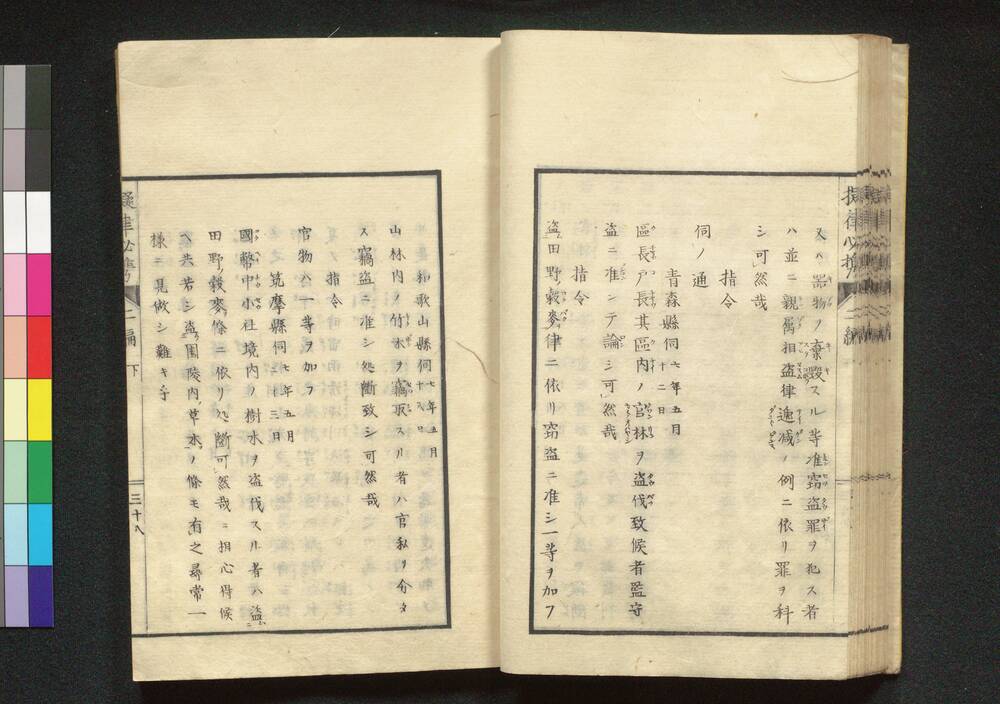 又ハ器物ノ棄毀スル等准窃盗罪ヲ犯ス者
ハ並ニ親属相盗律逓减ノ例ニ依リ罪ヲ科
シ可然哉
指令
伺ノ通
青森縣伺七年五月十二日
區長戸長其區内ノ官林ヲ盗伐致候者監守
盗ニ准シテ論シ可然哉
指令
盗田野穀麥律ニ依リ窃盗ニ准シ一等ヲ加フ
和歌山縣伺七年五月
山林内ノ竹木ヲ竊取スル者ハ官私ヲ分タ
ス竊盗ニ准シ処断致シ可然哉
指令
官物ハ一等ヲ加フ
筑摩縣伺七年五月十三日
國幣中小社境内ノ樹木ヲ盗伐スル者ハ盗
田野穀麥條ニ依リ処断可然哉ニ相心得候
ヘ共若シ盗園陵内草木ノ條モ有之尋常一
様ニ見做シ難キ乎
擬律必携 二編 下
三十八